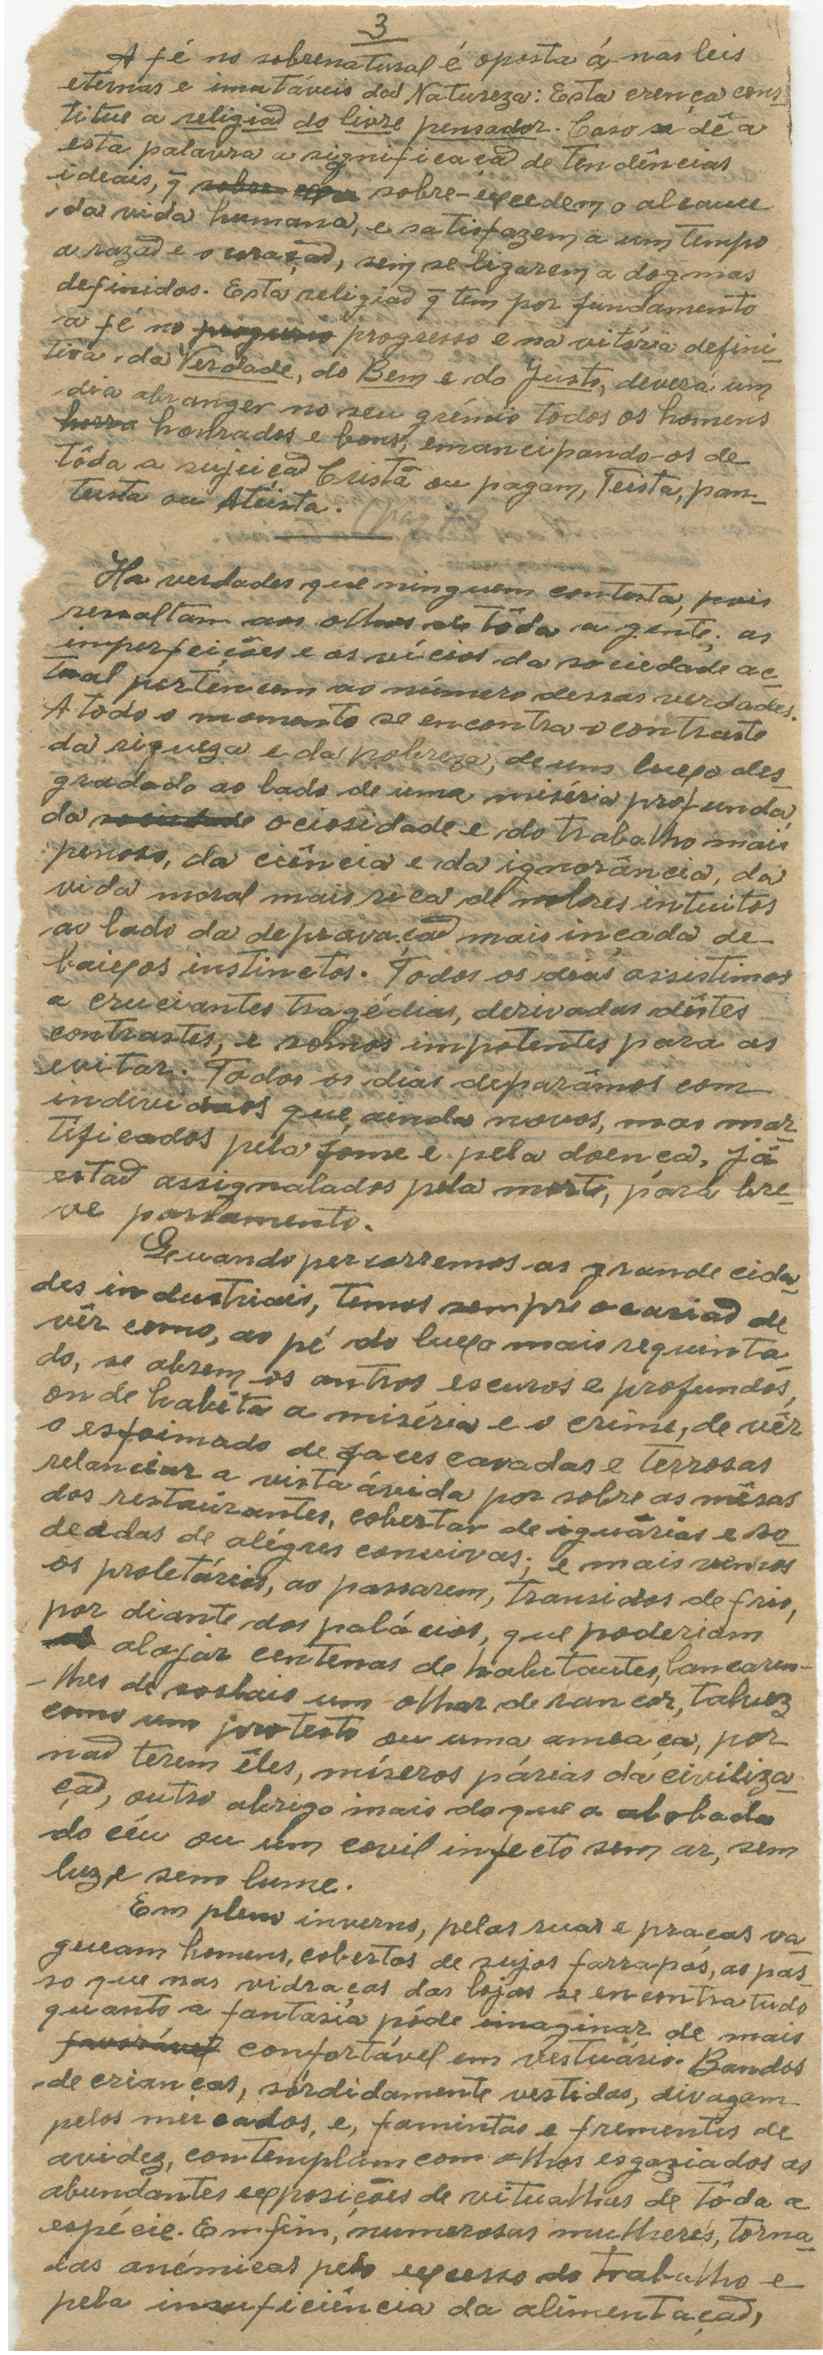 3
A fé no sobrenatural é oposta á nas leis
eternas e imutáveis da Natureza: Esta crença cons-
titue a religião do livre pensador. Caso se dê a
esta palavra a significação de tendências
ideais, q̃ sobre-excedem o alcance
da vida humana, e satisfazem a um tempo
a razão e o coração, sem se ligarem a dogmas
definidos. Esta religião q̃ tem por fundamento
a fé no progresso e na vitória defini-
tiva, da Verdade, do Bem e do Justo, deverá um
dia abranger no seu grémio todos os homens
honrados e bons, emancipando-os de
tôda a sujeição Cristã ou pagam, Teista, pan-
teista ou Ateista.
Ha verdades que ninguem contesta, pois
resaltam aos olhos de tôda a gente; as
imperfeições e os vícios da sociedade ac-
tual pertencem ao número dessas verdades.
A todo o momento se encontra o contraste
da riqueza e da pobreza, de um luxo des-
gradado ao lado de uma miséria profunda,
da ociosidade e do trabalho mais
penoso, da ciência e da ignorância, da
vida moral mais rica de nobres intuitos
ao lado da depravação mais inçada de
baixos instinctos. Todos os dias assistimos
a cruciantes tragédias, derivadas dêstes
contrastes, e somos impotentes para as
evitar. Todos os dias deparâmos com
individuos que, ainda novos, mas mar-
tificados pela fome e pela doença, já
estão assignalados pela morte, pará bre-
ve passamento.
Quando percorremos as grande cida-
des industriais, temos sempre ocasião de
vêr como, ao pé do luxo mais requinta-
do, se abrem os antros escuros e profundos,
onde habita a miséria e o crime, de vêr
o esfoimado de faces cavadas e terrosas
relancear a vista ávida por sobre as mêsas
dos restaurantes, cobertas de iguárias e ro-
deadas de alégres convivas; e mais vemos
os proletários, ao passarem, transidos de frio,
por diante dos palácios, que poderiam
alojar centenas de habitantes, lancarem-
-lhes de soslaio um olhar de rancor, talvez
como um protesto ou uma ameaça, por
não terem êles, míseros párias da civiliza-
ção, outro abrigo mais do que a abobada
do céu ou um covil infecto sem ar, sem
luz e sem lume.
Em pleno inverno, pelas ruas e praças va-
gueam homens, cobertos de sujos farrapos, ao pas-
so que nas vidraças das lojas se encontra tudo
quanto a fantasia póde imaginar de mais
favorável confortável em vestuário. Bandos
de crianças, sórdidamente vestidas, divagam
pelos mercados, e, famintas e frementes de
avidez, contemplam com olhos esgaziados as
abundantes exposições de vitualhas de tôda a
espécie. Emfim, numerosas mulheres, torna-
das anémicas pelo excesso do trabalho e
pela insuficiência da alimentação,